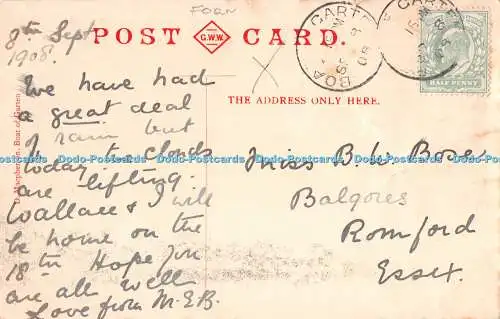 Foan
POST CARD.
G.W.W.
8th Sept
1908.
We have had
a great deal
of rain but
today the clouds
are lifting.
Wallace & I will
be home on the
18th Hope you
are all well
Love from M.E.B.
THE ADDRESS ONLY HERE.
Miss B. W. Bose
Balgores
Romford
Essex.
BOAT
GARTE
SE 8
08
GARTE
SE 8
08
HALF PENNY
Boat of Garten
Dodo-Postcards Dodo-Postcards Dodo-Postcards Dodo-Postcards Dodo-Postcards Dodo-Postcards